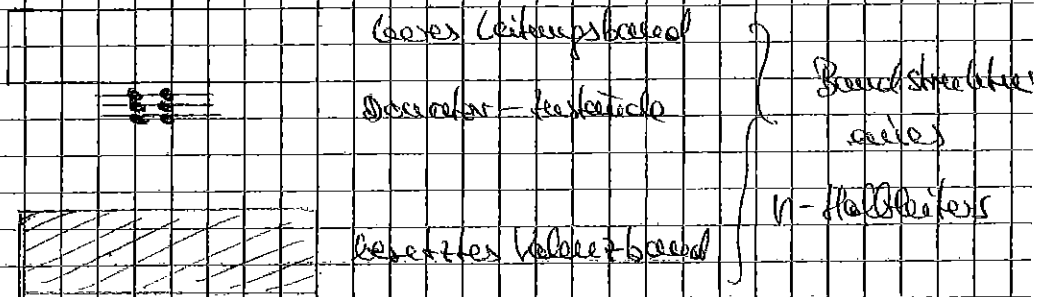 leeres Leitungsband
Donator-Zustände
besetztes Valenzband
Bandstruktur
eines
n-Halbleiters